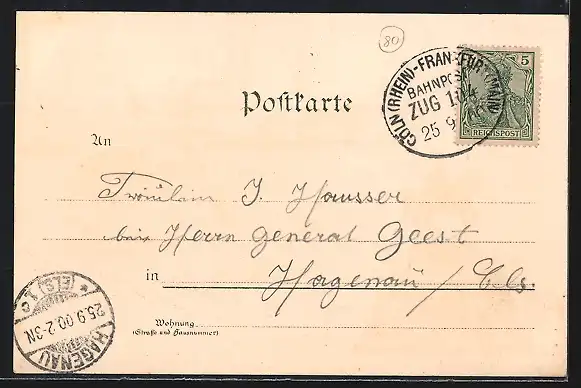 80
CÖLN (RHEIN)-FRANKFURT (MAIN)
BAHNPOST
ZUG
25 9
5
REICHSPOST
Postkarte
An
Fräulein J. Hausser
bei Herrn General Geest
in Hagenau / Els.
Wohnung
(Straße und Hausnummer)
(ELS)
25.9.00.2-3N
HAGENAU